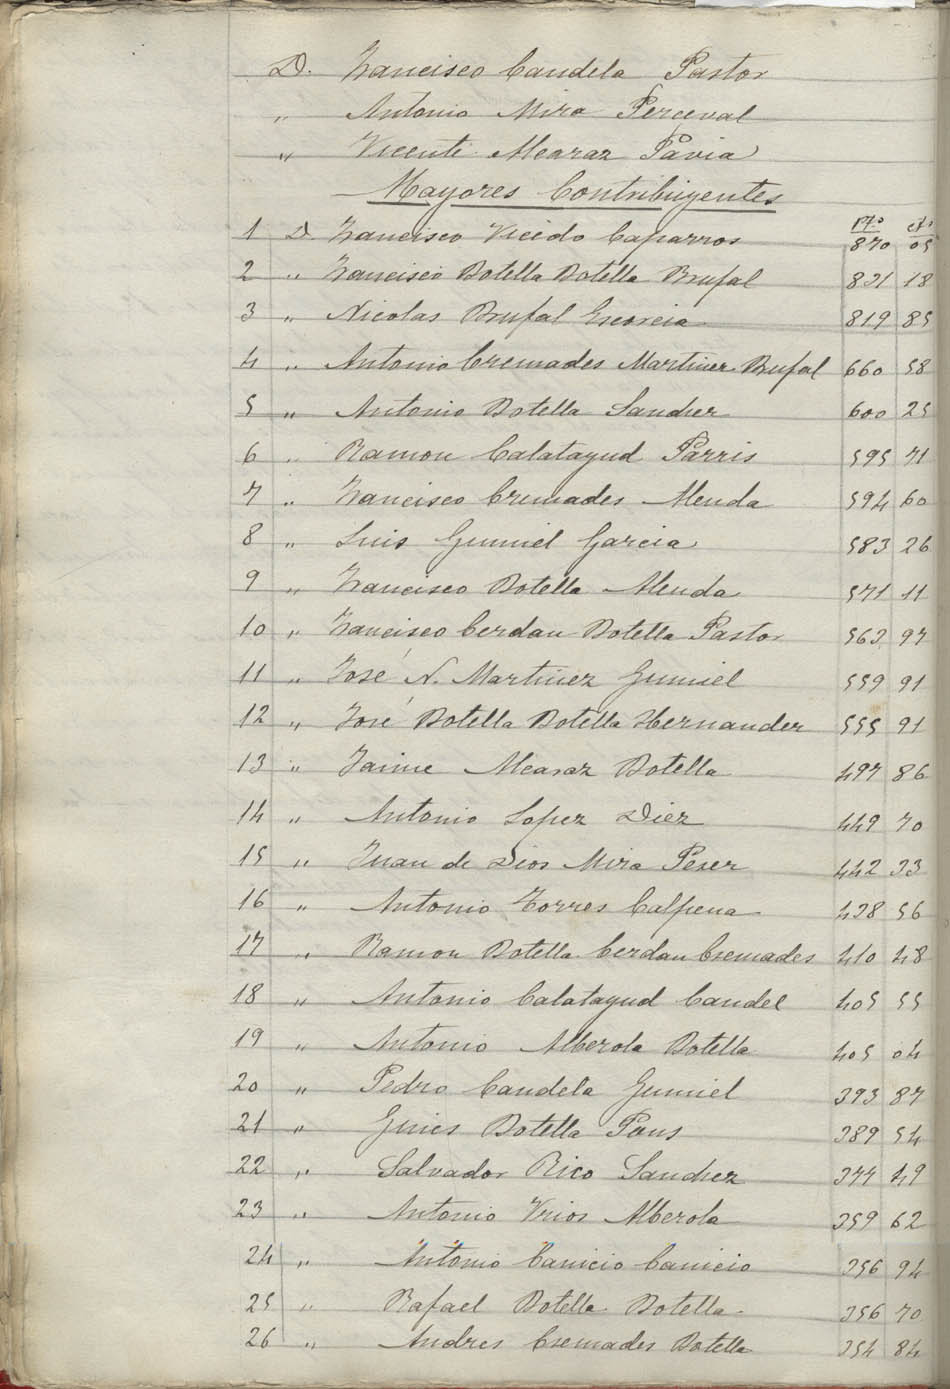 D. Francisco Candela Pastor
„ Antonio Mira Perceval
„ Vicente Alcaraz Pavia
Mayores Contribuyentes
Pts. Cts.
1 D. Francisco Vicedo Caparros 870 05
2 „ Francisco Botella Botella Brufal 831 18
3 „ Nicolas Brufal Escorcia 819 85
4 „ Antonio Cremades Martinez Brufal 660 58
5 „ Antonio Botella Sanchez 600 25
6 „ Ramon Calatayud Parris 595 71
7 „ Francisco Cremades Alenda 594 60
8 „ Luis Gumiel Garcia 583 26
9 „ Francisco Botella Alenda 571 11
10 „ Francisco Cerdan Botella Pastor 563 97
11 „ José N. Martinez Gumiel 559 91
12 „ José Botella Botella Hernandez 555 91
13 „ Jaime Alcaraz Botella 497 86
14 „ Antonio Lopez Diez 449 70
15 „ Juan de Dios Mira Perez 442 33
16 „ Antonio Torres Calpena 438 56
17 „ Ramon Botella Cerdan Cremades 410 48
18 „ Antonio Calatayud Candel 405 55
19 „ Antonio Alberola Botella 405 04
20 „ Pedro Candela Gumiel 393 87
21 „ Gines Botella Pons 389 54
22 „ Salvador Rico Sanchez 377 49
23 „ Antonio Urios Alberola 359 62
24 „ Antonio Canicio Canicio 356 94
25 „ Rafael Botella Botella 356 70
26 „ Andres Cremades Botella 354 84